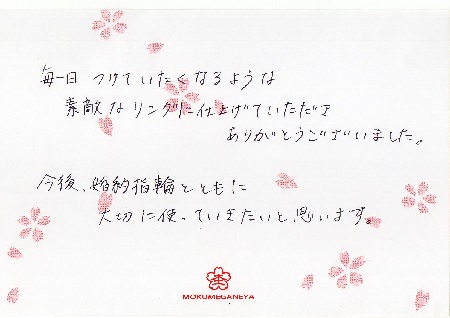 毎日つけていたくなるような
素敵なリングに仕上げていただき
ありがとうございました。
今後、婚約指輪とともに
大切に使っていきたいと思います。
MOKUMEGANEYA